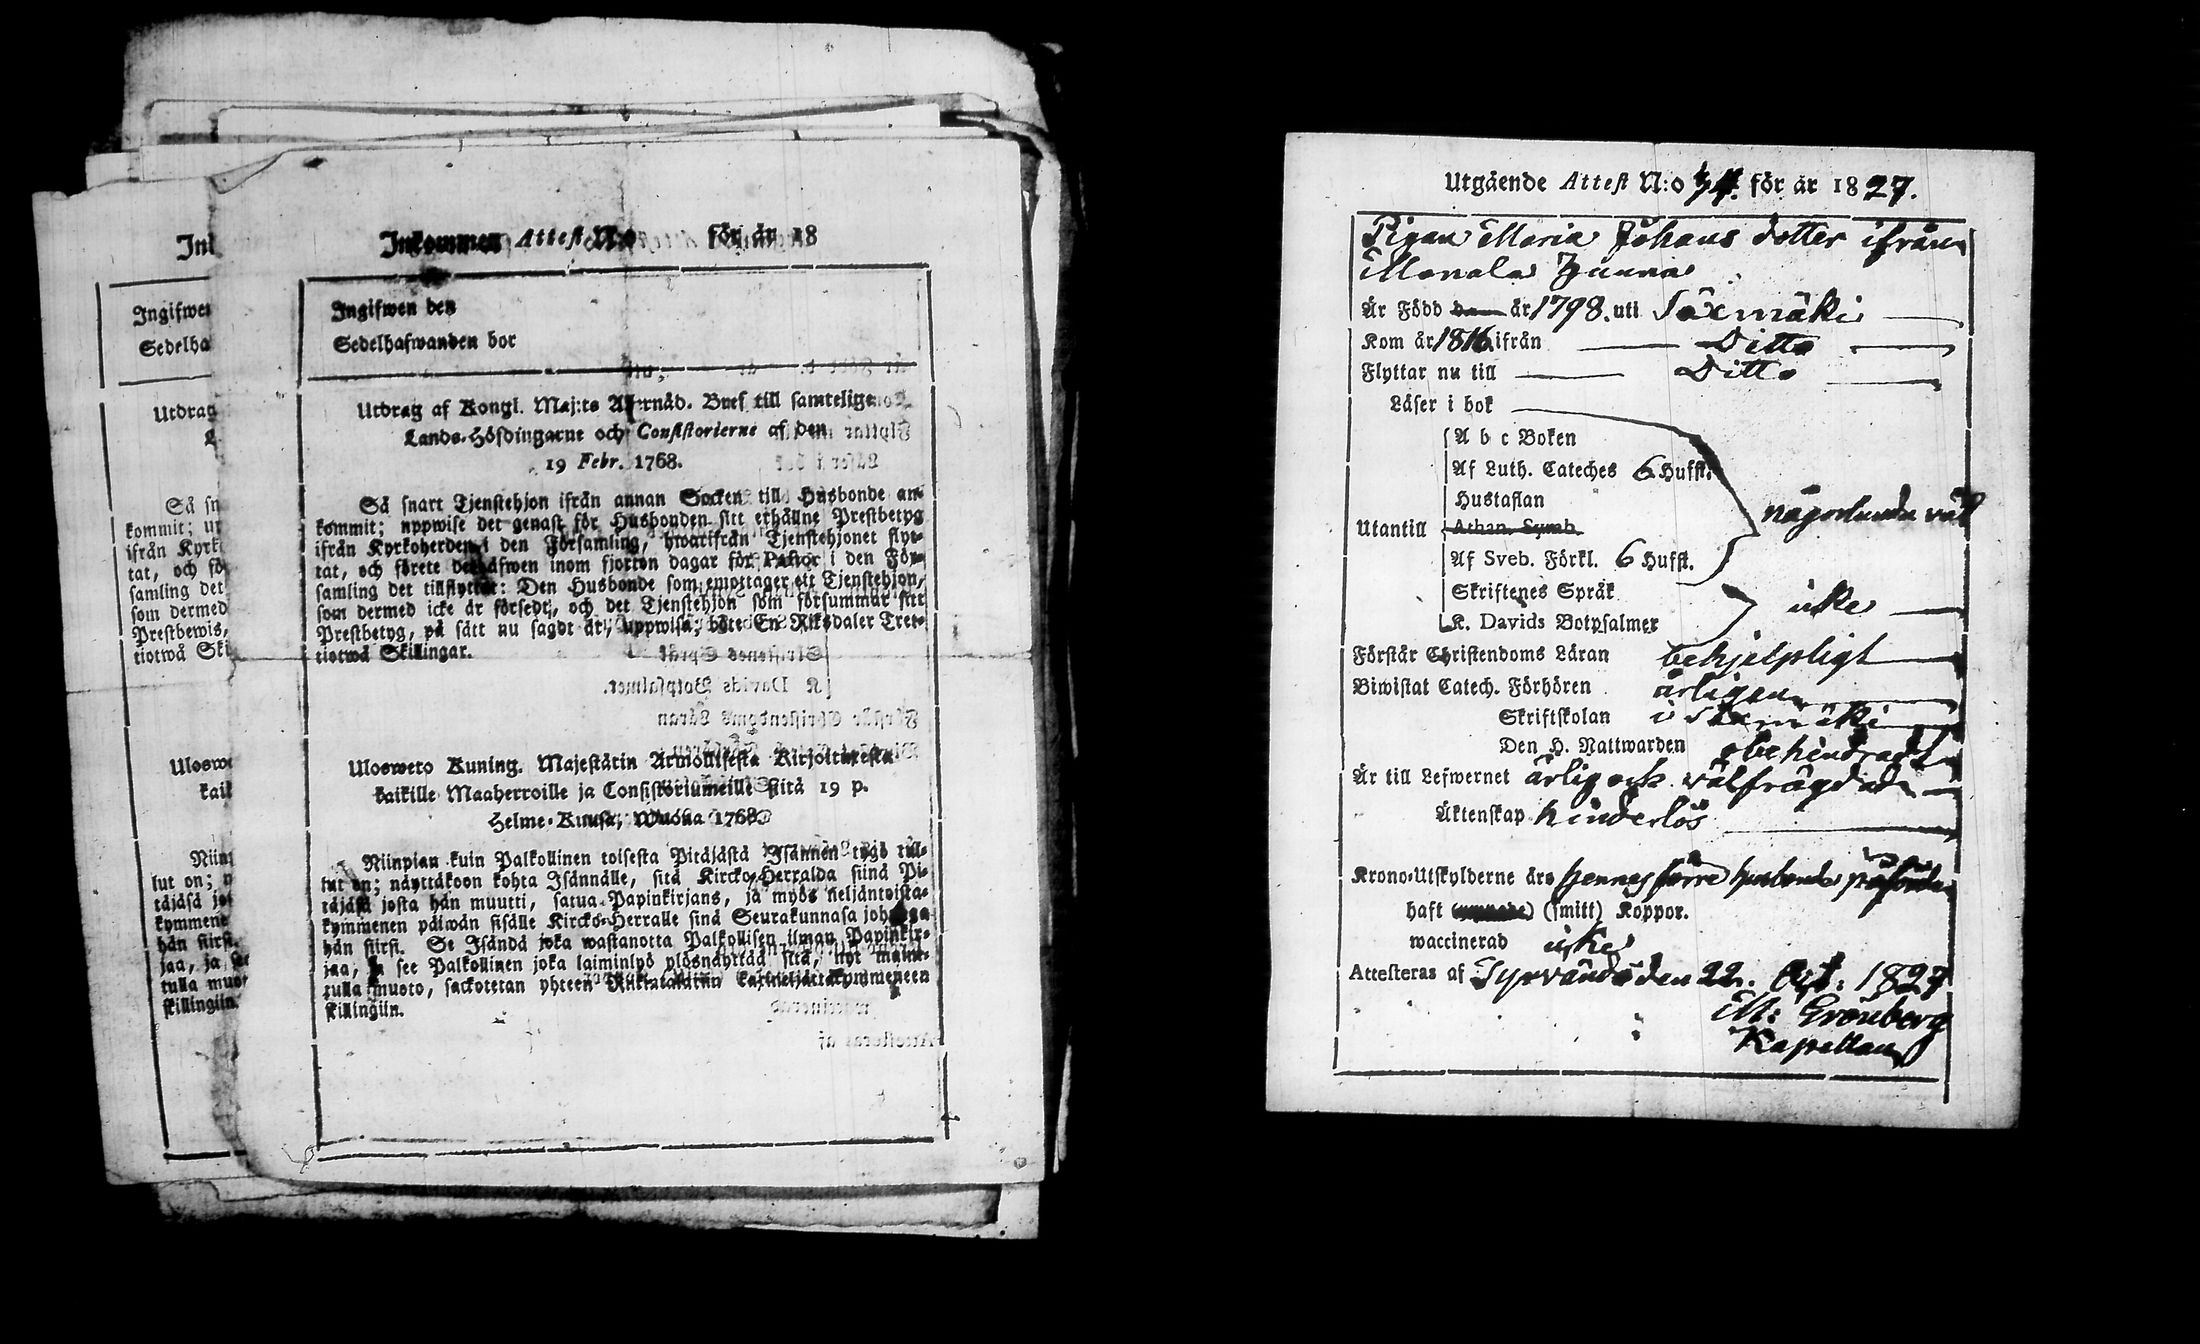 Inkommen Attest N:o för år 18
Ingifwen den
Sedelhafwanden bor
Utdrag af Kongl. Maj:ts Allernåd. Bref till samtelige
Lands-Höfdingarne och Consistorierne af den
19 Febr. 1768.
Så snart Tjenstehjon ifrån annan Socken till Husbonde an-
kommit; uppwise det genast för Husbonden sitt erhållne Prestbetyg
ifrån Kyrkoherden i den Församling, hwarifrån Tjenstehjonet flyt-
tat, och förete derhäfwen inom fjorton dagar för Pastor i den För-
samling det tillflyttat: Den Husbonde som emottager ett Tjenstehjon,
som dermed icke är försedt, och det Tjenstehjon som försummar sitt
Prestbetyg, på sätt nu sagdt är, uppwisa, böte En Riksdaler Tret-
tiotwå Skillingar.
Ulosweto Kuning. Majestätin Armollisesta Kirjoituxesta
kaikille Maaherroille ja Consistoriumeille sitä 19 p.
Helme-Kuusa, Wuonna 1768.
Niinpian kuin Palkollinen toisesta Pitäjästä Isännen tygö tul-
lut on; näyttäkoon kohta Isännälle, sitä Kircko-Herralda siinä Pi-
täjäsä josta hän muutti, saatua Papinkirjans, ja myös neljäntoista-
kymmenen päiwän sisälle Kircko-Herralle sinä Seurakunnasa johonga
hän siirsi. Se Isändä joka wastanotta Palkollisen ilman Papinkir-
jaa, ja see Palkollinen joka laiminlyö ylösnäyttää sitä, nyt maini-
tulla muoto, sackotetan yhteen Riikintalariin kaxineljättäkymmeneen
skillingiin.
Ini
Ingifwe
Sedelha
Utdrag
L
Så sn
kommit; up
ifrån Kyrk
tat, och fö
samling det
som dermed
Prestbewis,
tiotwå Ski
Ulosw
kaik
Niinp
lut on; n
täjäsä jos
kymmene
hän siirsi.
jaa, ja se
tulla muo
skillingiin.
Utgående Attest N:o 74. för år 1827.
Pigan Maria Johans dotter ifrån
Monala Junna
Är Född den år 1798. uti Säxmäki
Kom år 1816 ifrån Ditto
Flyttar nu till Ditto
Läser i bok
A b c Boken
Af Luth. Cateches 6 Hufst.
Hustaflan
någorlunda väl
Utantill Athan. Symb.
Af Sveb. Förkl. 6 Hufst.
Skriftenes Språk
icke
K. Davids Botpsalmer
Förstår Christendoms Läran behjelpligt
Biwistat Catech. Förhören årligen
Skriftskolan i Säxmäki
Den H. Nattwarden obehindradt
Är till Lefwernet ärlig och välfrägdad
Äktenskap hinderlös
Krono-Utskylderne äro hennes förre husbonde påförde
haft (smitt) Koppor.
waccinerad icke
Attesteras af Tyrvändö den 22. Oct: 1827
M: Grönberg
Kapellan